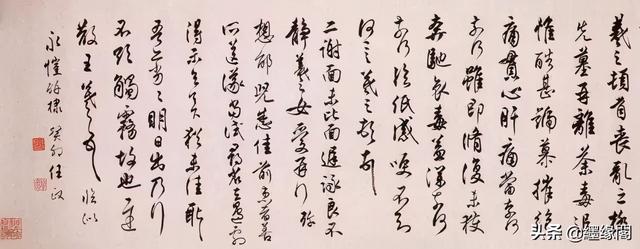 羲之頓首喪亂之極
先墓再離荼毒追
惟酷甚號慕摧絕
痛貫心肝痛當奈何
奈何雖即脩復未獲
奔馳哀毒益深奈何
奈何臨紙感哽不知
何言羲之頓首
二謝面未比面遲詠良不
靜羲之女愛再拜
想邰兒悉佳前患者善
所送議當試尋省左邊劇
得示知足下猶未佳耿
吾亦劣劣明日出乃行
不欲觸霧故也遲
散王羲之頓首 臨似
永愷好棣 癸卯任政
头条 @墨缘阁